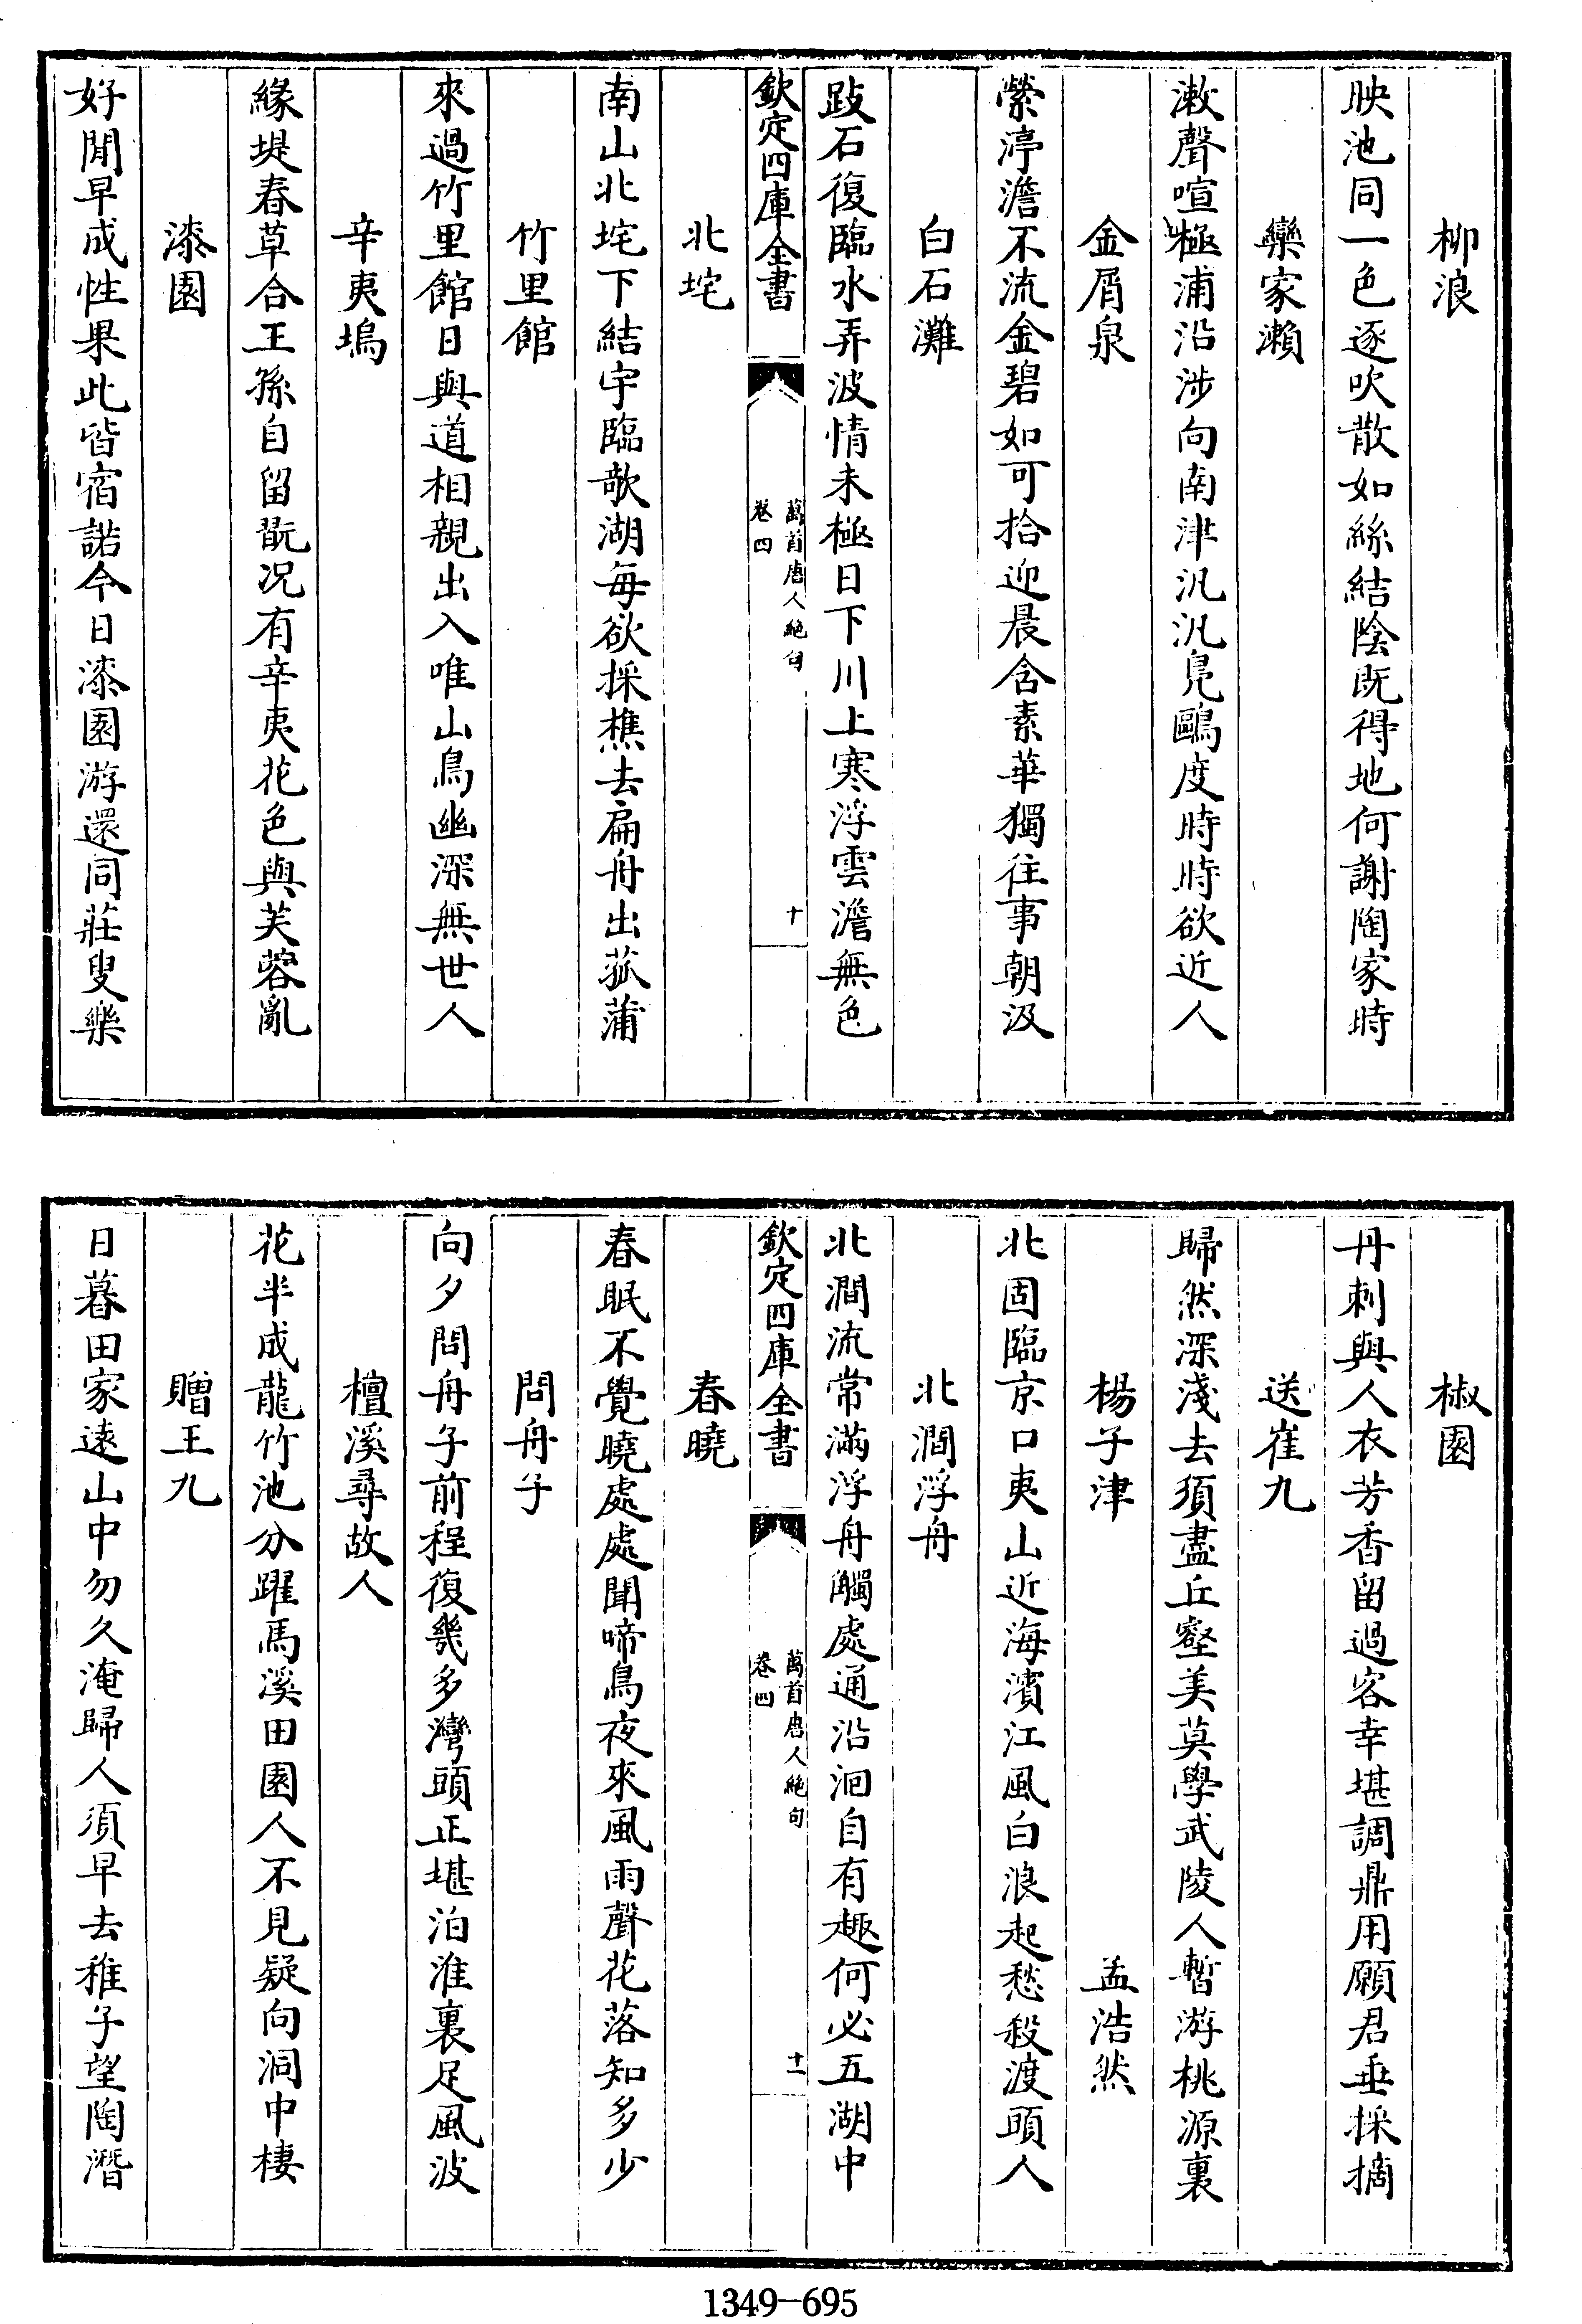 柳浪
映池同一色逐吹散如絲結陰既得地何謝陶家時
欒家瀨
潄聲喧極浦沿涉向南津汎汎鳬鷗度時時欲近人
金屑泉
縈渟澹不流金碧如可拾迎晨含素華獨往事朝汲
白石灘
跂石復臨水弄波情未極日下川上寒浮雲澹無色
欽定四庫全書
萬首唐人絶句
卷四
十
北垞
南山北垞下結宇臨欹湖每欲採樵去扁舟出菰蒲
竹里館
來過竹里館日與道相親出入唯山鳥幽深無世人
辛夷塢
緣堤春草合王孫自留翫况有辛夷花色與芙蓉亂
漆園
好閒早成性果此皆宿諾今日漆園游還同莊叟樂
椒園
丹刺與人衣芳香留過客幸堪調鼎用願君垂採摘
送崔九
歸然深淺去須盡丘壑美莫學武陵人暫游桃源裏
楊子津
孟浩然
北固臨京口夷山近海濱江風白浪起愁殺渡頭人
北澗浮舟
北澗流常滿浮舟觸處通沿洄自有趣何必五湖中
欽定四庫全書
萬首唐人絶句
卷四
十一
春曉
春眠不覺曉處處聞啼鳥夜來風雨聲花落知多少
問舟子
向夕問舟子前程復幾多灣頭正堪泊淮裏足風波
檀溪尋故人
花半成龍竹池分躍馬溪田園人不見疑向洞中棲
贈王九
日暮田家遠山中勿久淹歸人須早去稚子望陶潛
1349-695